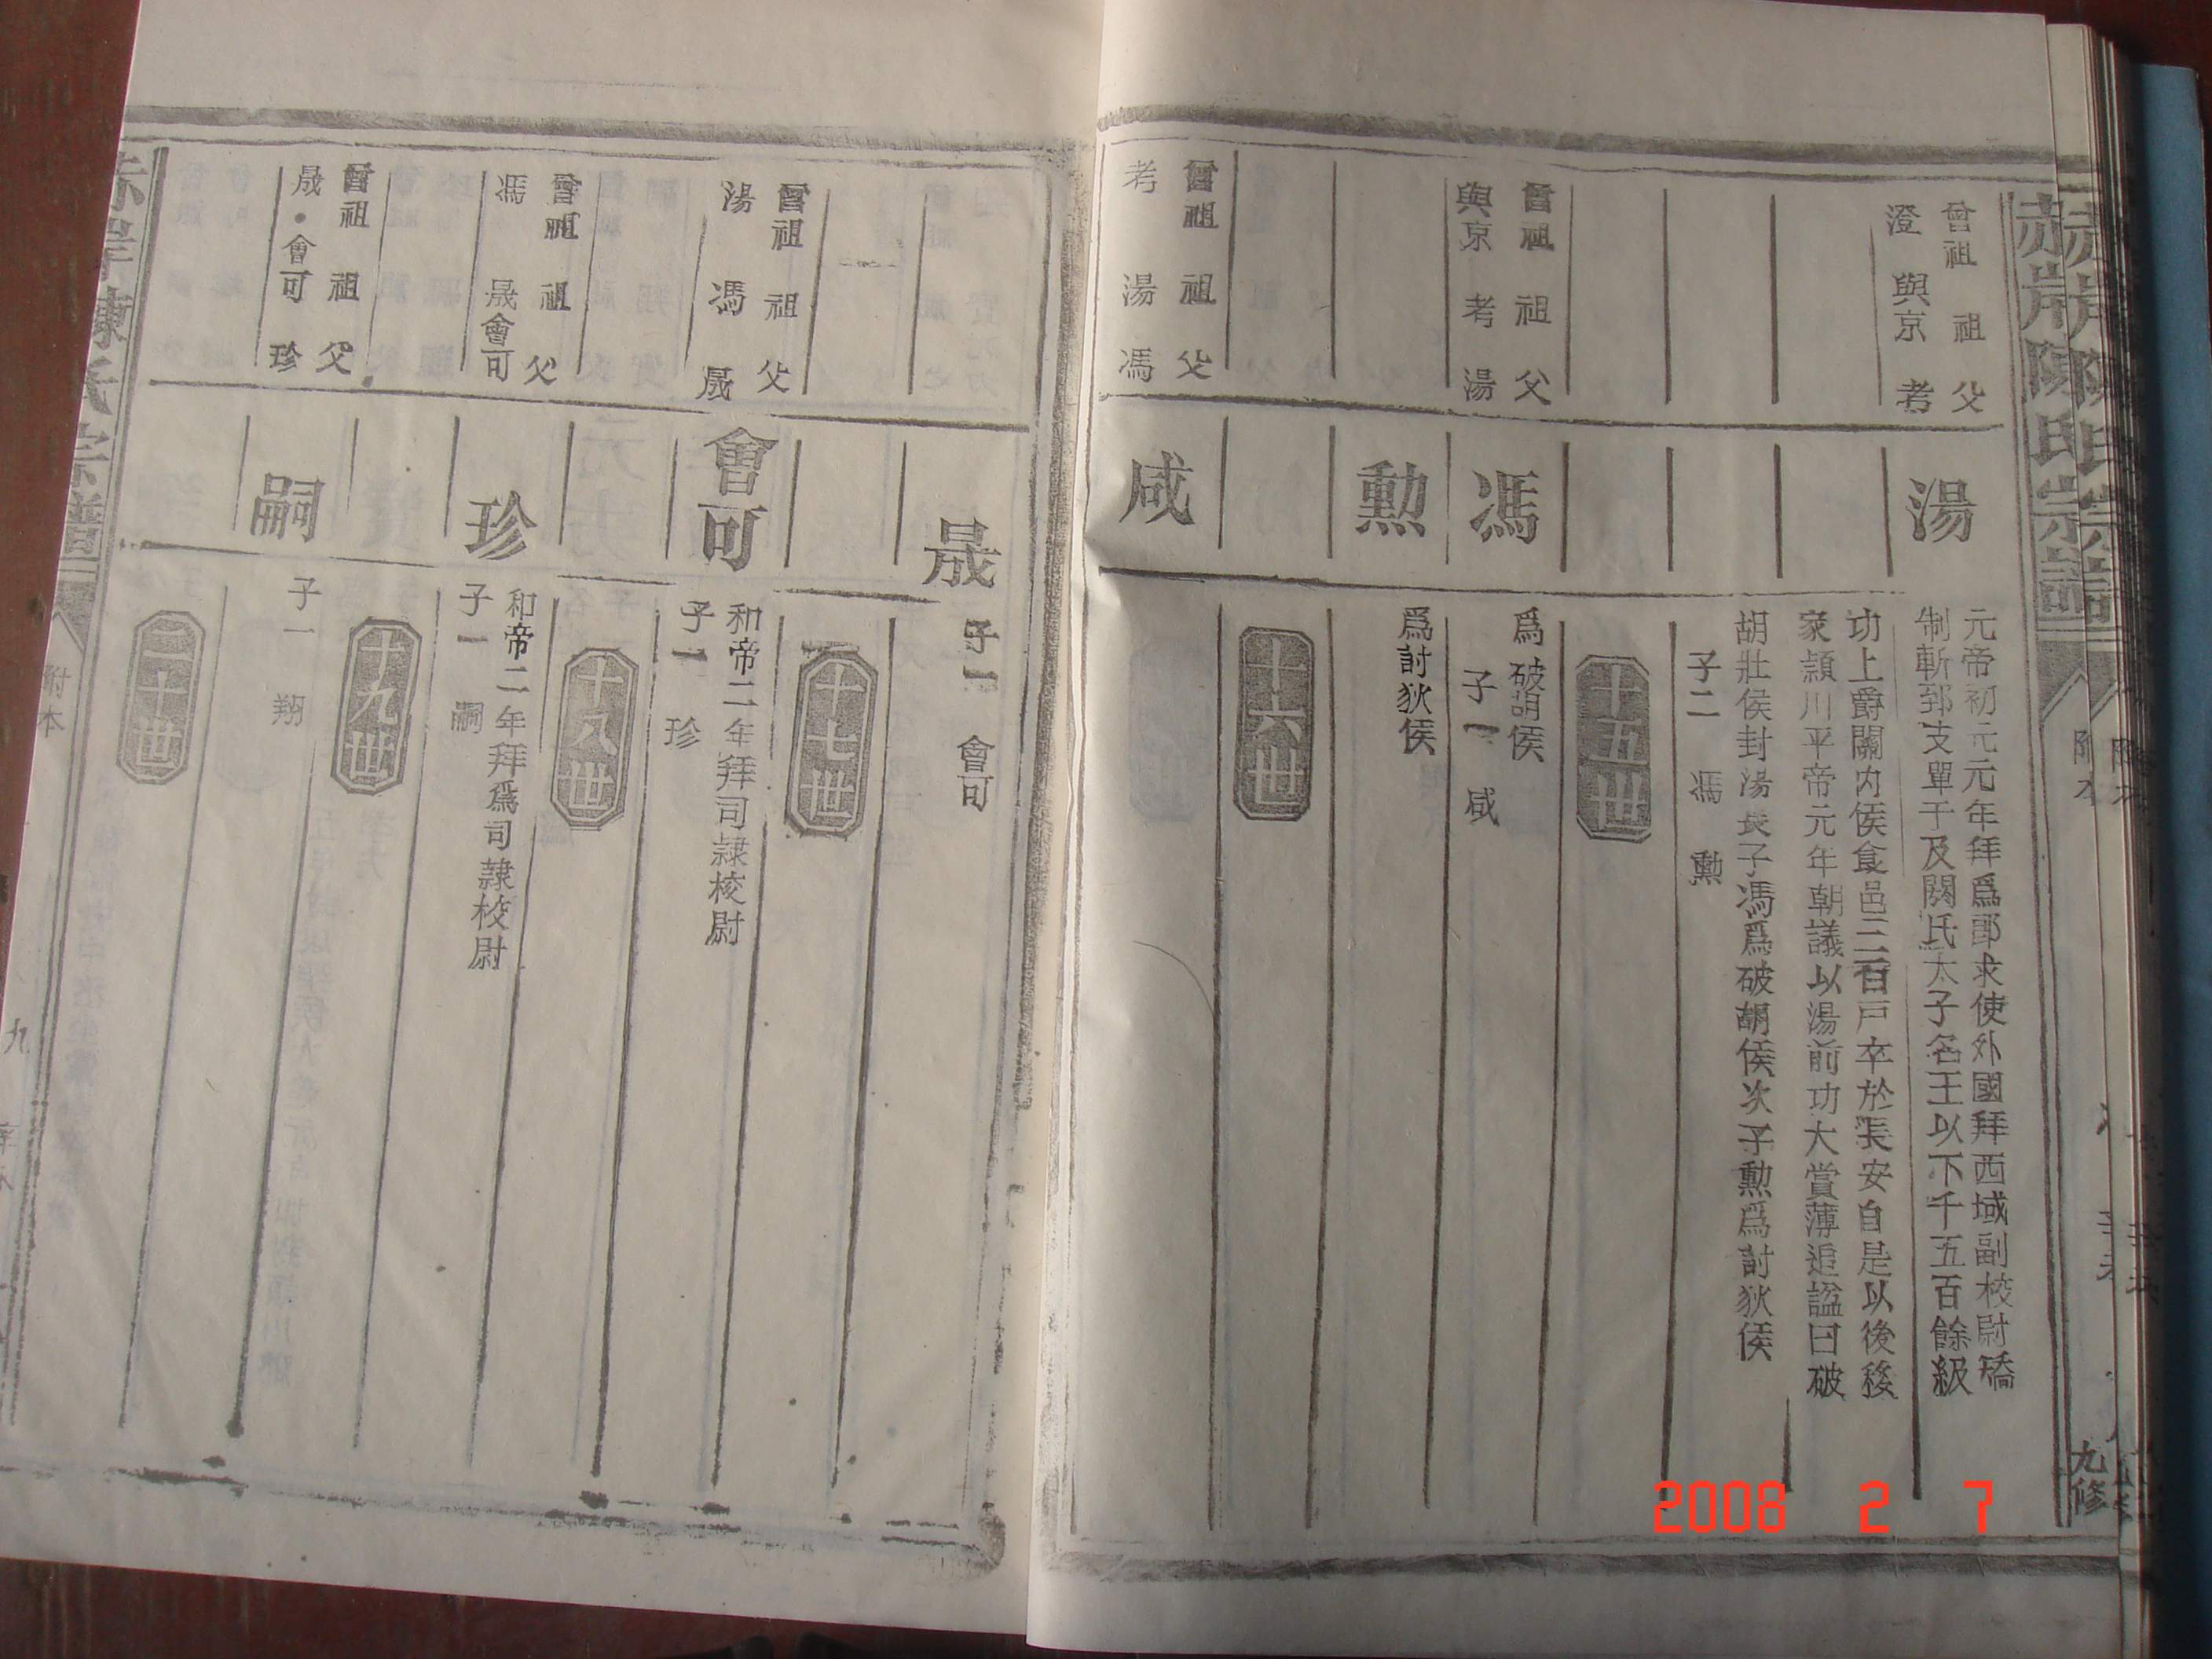 赤岸陳氏宗譜
附本
九修
曾祖 祖 父
澄 與京 考
湯
元帝初元元年拜爲郎求使外國拜西域副校尉矯
制斬郅支單于及閼氏太子名王以下千五百餘級
功上爵關內侯食邑三百戶卒於長安自是以後移
家潁川平帝元年朝議以湯前功大賞薄追諡曰破
胡壯侯封湯長子馮爲破胡侯次子勳爲討狄侯
子二 馮 勳
十五世
曾祖 祖 父
與京 考 湯
馮
爲破胡侯
子一 咸
勳
爲討狄侯
十六世
曾祖 祖 父
考 湯 馮
咸
晟
子一 會可
十七世
曾祖 祖 父
湯 馮 晟
會可
和帝二年拜司隷校尉
子一 珍
十八世
曾祖 祖 父
馮 晟 會可
珍
和帝二年拜爲司隷校尉
子一 嗣
十九世
曾祖 祖 父
晟 會可 珍
嗣
子一 翔
二十世
赤岸陳氏宗譜
附本
九
2008 2 7